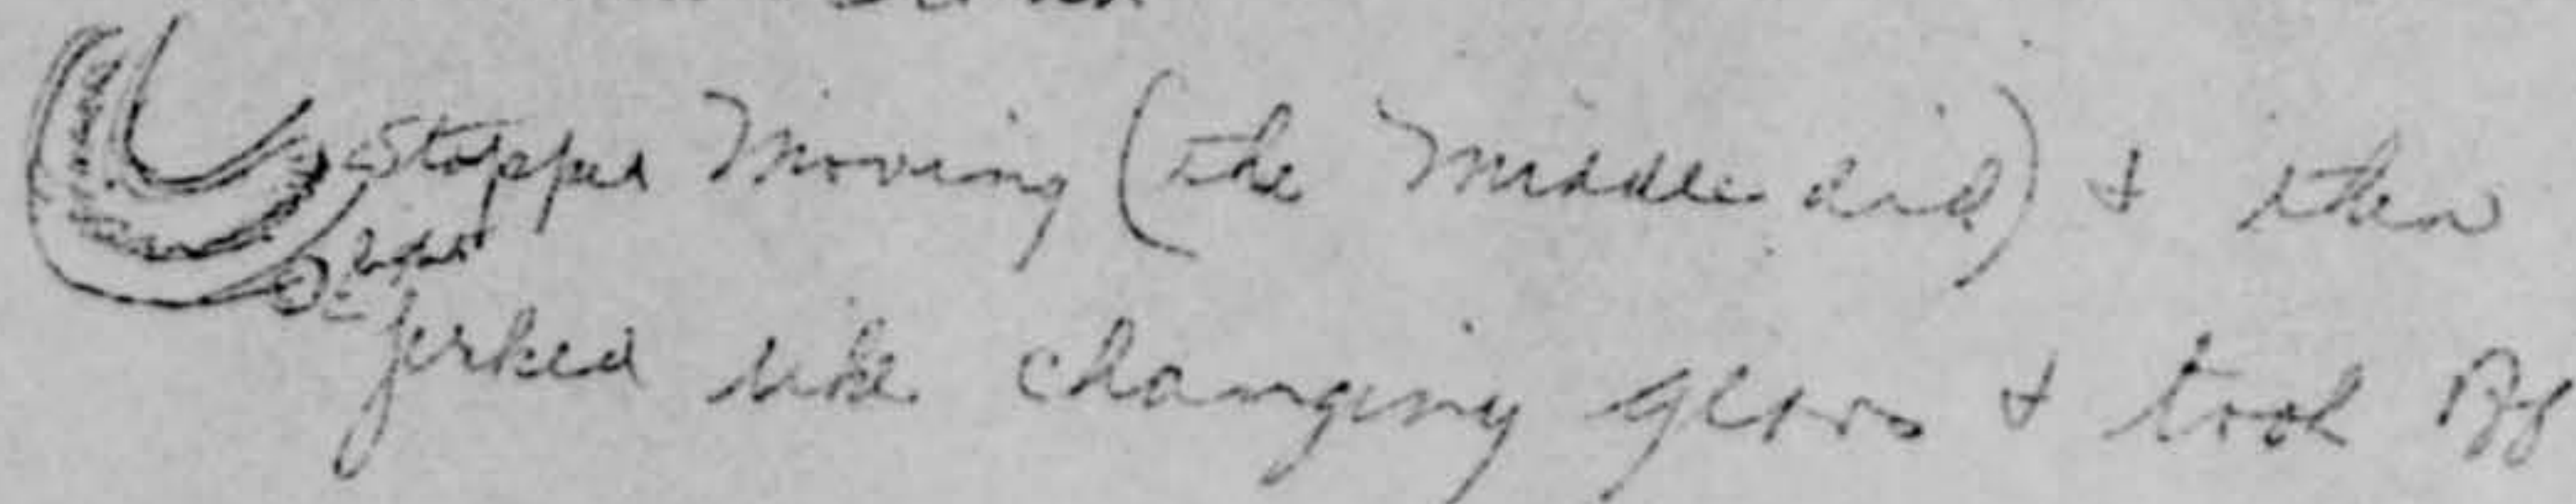 Stopped Moving (the Middle did) & then
light
jerked like changing gears & took Off